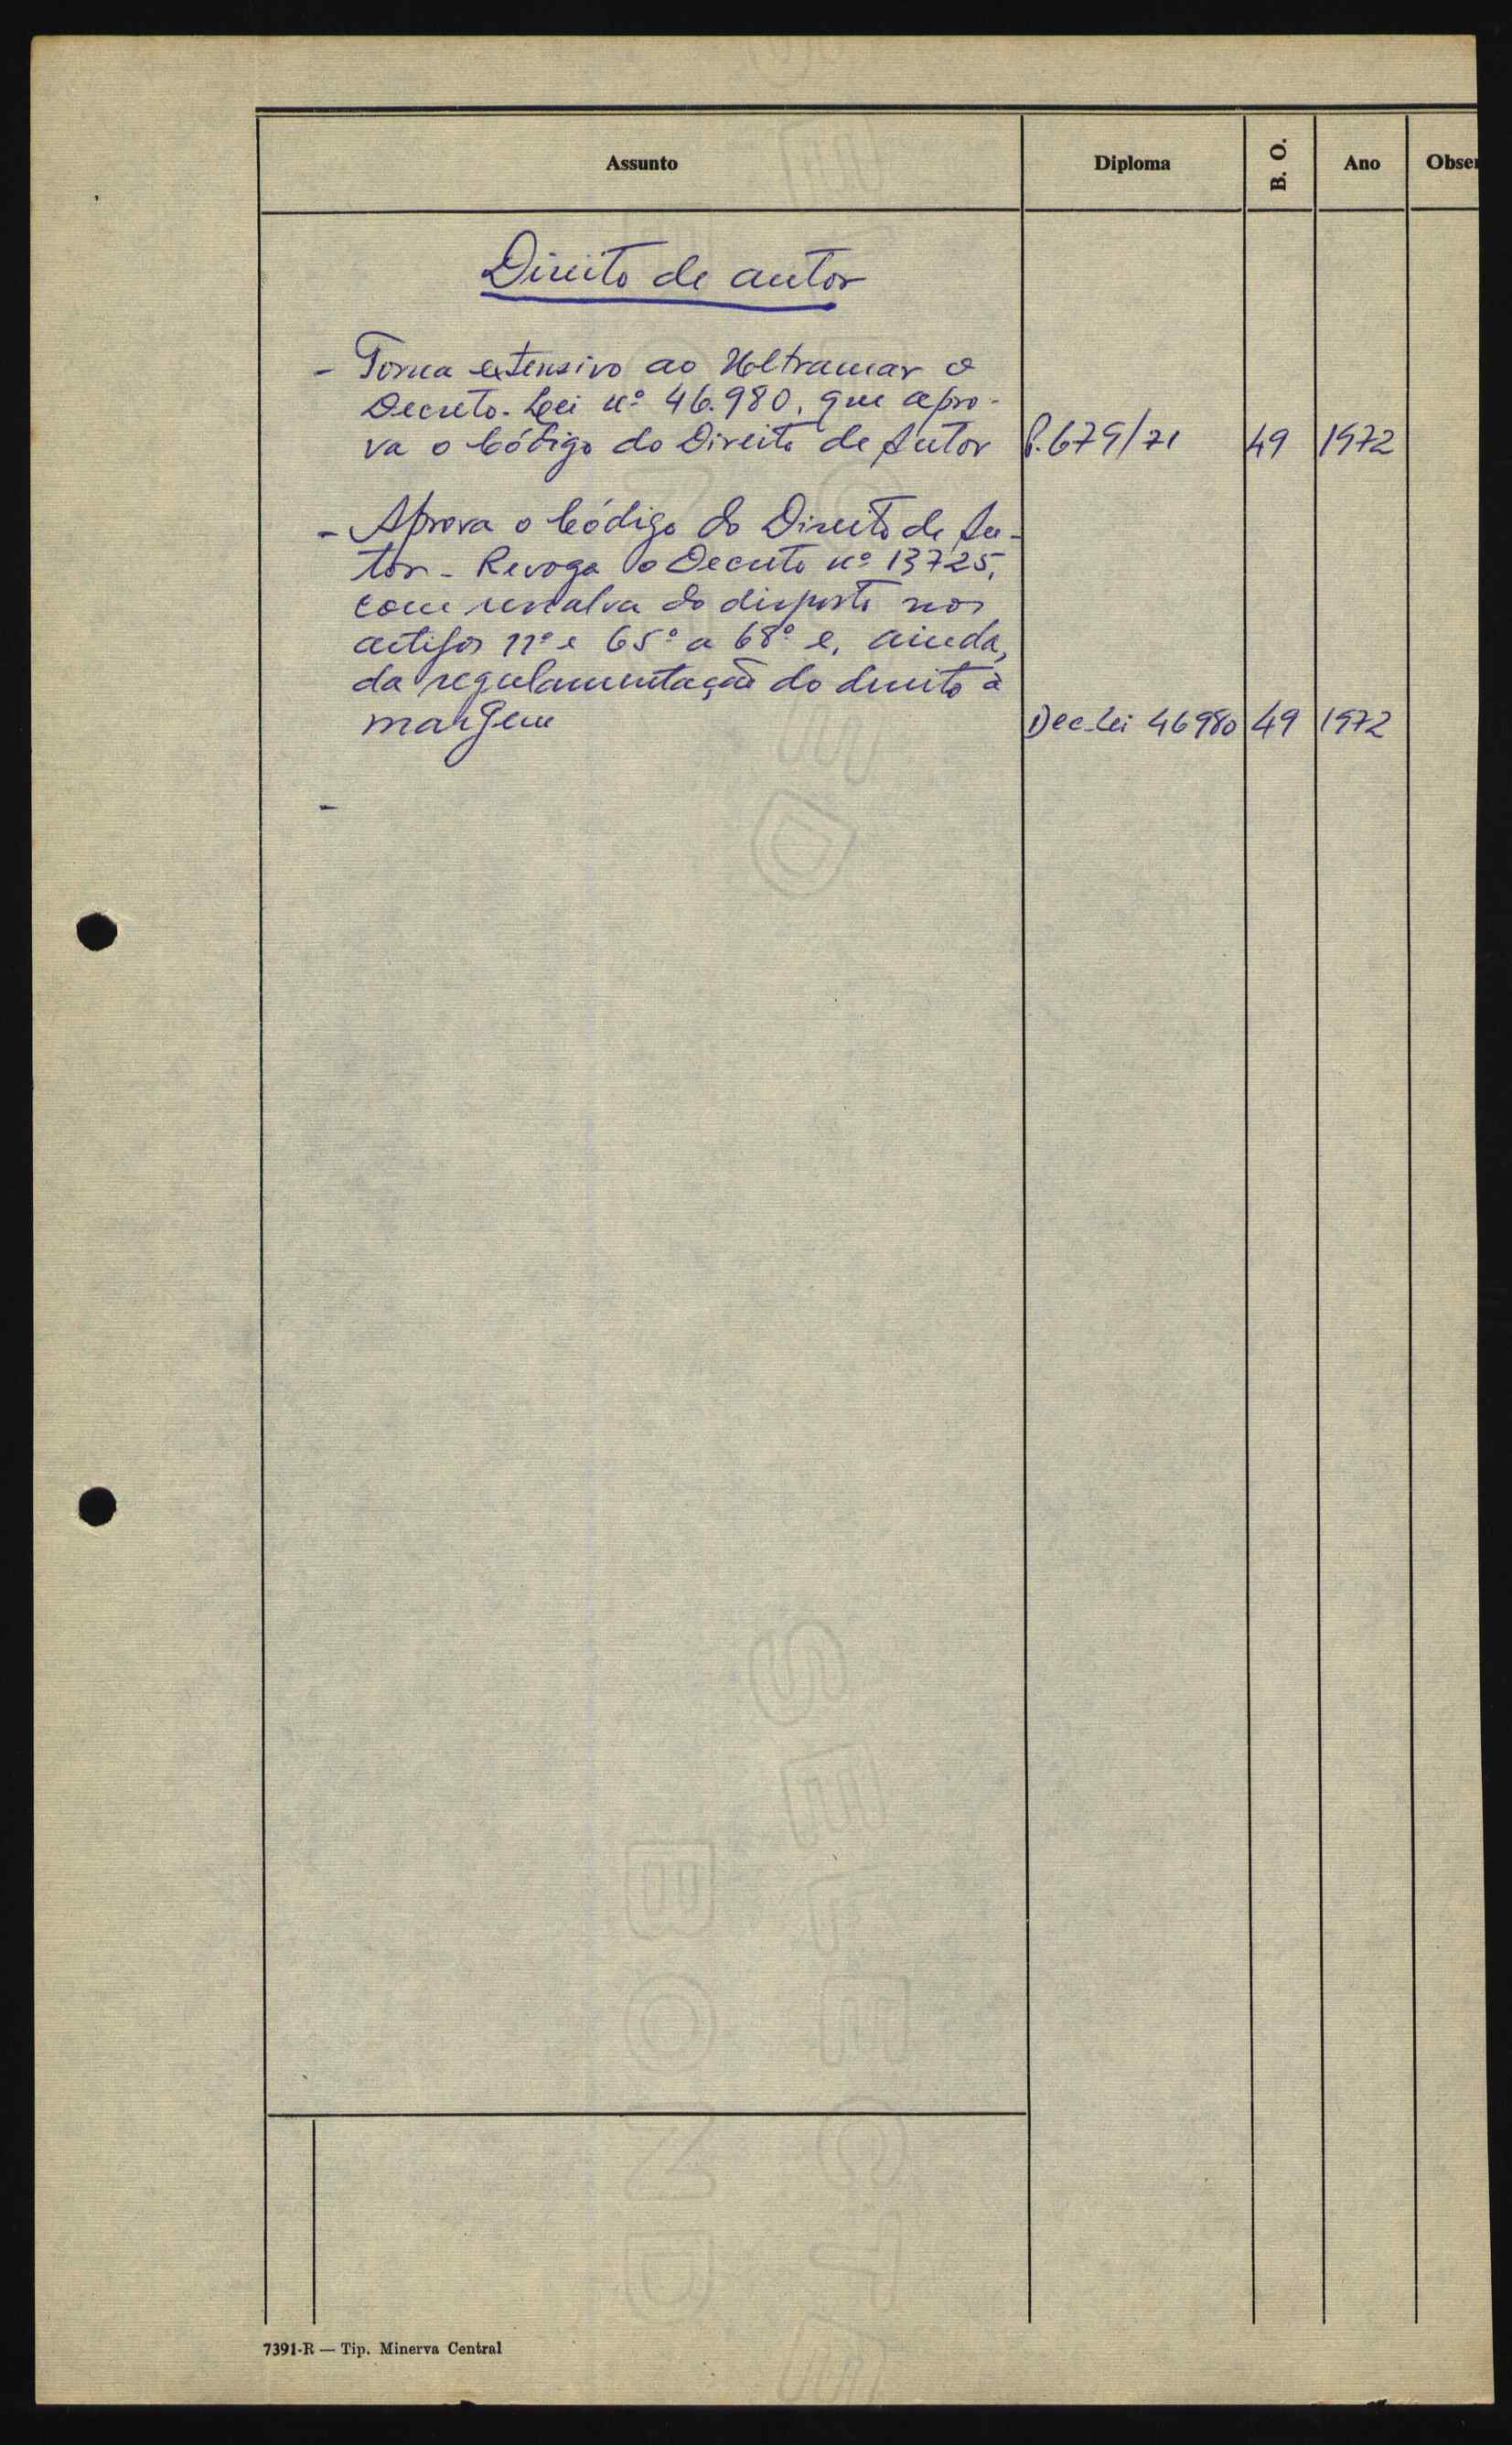 Assunto Diploma B. O. Ano Obser
Direito de autor
- Torna extensivo ao Ultramar o
Decreto-Lei nº 46.980, que apro-
va o Código do Direito de Autor P. 679/71 49 1972
- Aprova o Código do Direito de Au-
tor - Revoga o Decreto nº 13725,
com ressalva do disposto nos
artigos 11º e 65º a 68º e, ainda,
da regulamentação do direito à
margem Dec-Lei 46980 49 1972
-
7391-R — Tip. Minerva Central